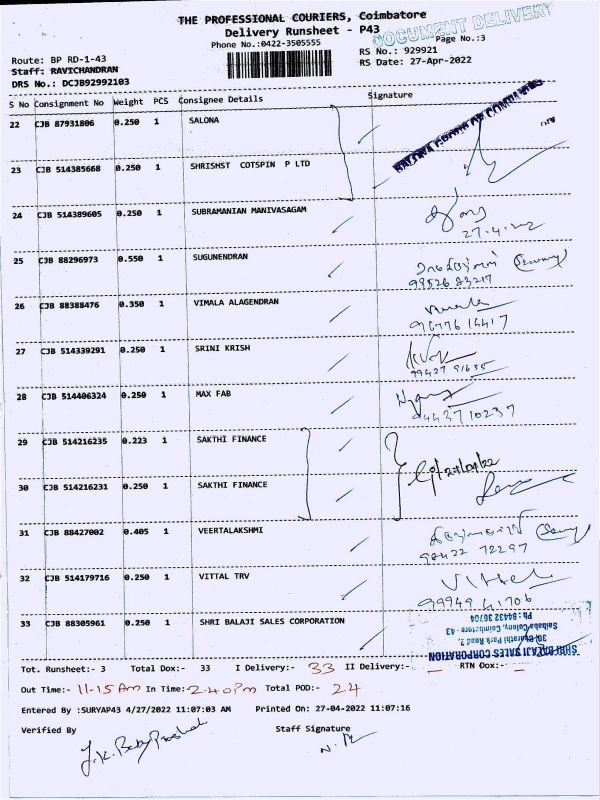 THE PROFESSIONAL COURIERS, Coimbatore
DOCUMENT DELIVERY
Delivery Runsheet - P43
Phone No.:0422-3505555
Page No.:3
Route: BP RD-1-43
RS No.: 929921
Staff: RAVICHANDRAN
RS Date: 27-Apr-2022
DRS No.: DCJB92992103
S No Consignment No Weight PCS Consignee Details Signature
22 CJB 87931806 0.250 1 SALONA
23 CJB 514385668 0.250 1 SHRISHST COTSPIN P LTD
24 CJB 514389605 0.250 1 SUBRAMANIAN MANIVASAGAM
27.4.22
25 CJB 88296973 0.550 1 SUGUNENDRAN
99526 83217
26 CJB 88388476 0.350 1 VIMALA ALAGENDRAN
27 CJB 514339291 0.250 1 SRINI KRISH
99427 91655
28 CJB 514406324 0.250 1 MAX FAB
94437 10237
29 CJB 514216235 0.223 1 SAKTHI FINANCE
27/04/22
30 CJB 514216231 0.250 1 SAKTHI FINANCE
31 CJB 88427002 0.405 1 VEERTALAKSHMI
98422 78297
32 CJB 514179716 0.250 1 VITTAL TRV
Vittal
99949 41706
33 CJB 88305961 0.250 1 SHRI BALAJI SALES CORPORATION
SHRI BALAJI SALES CORPORATION
30, Bharathi Park Road 2,
Saibaba Colony, Coimbatore - 43
Ph : 94432 36704
Tot. Runsheet:- 3 Total Dox:- 33 I Delivery:- 33 II Delivery:- — RTN Dox:- —
Out Time:- 11-15 Am In Time:- 2-40 Pm Total POD:- 24
Entered By :SURYAP43 4/27/2022 11:07:03 AM Printed On: 27-04-2022 11:07:16
Verified By Staff Signature